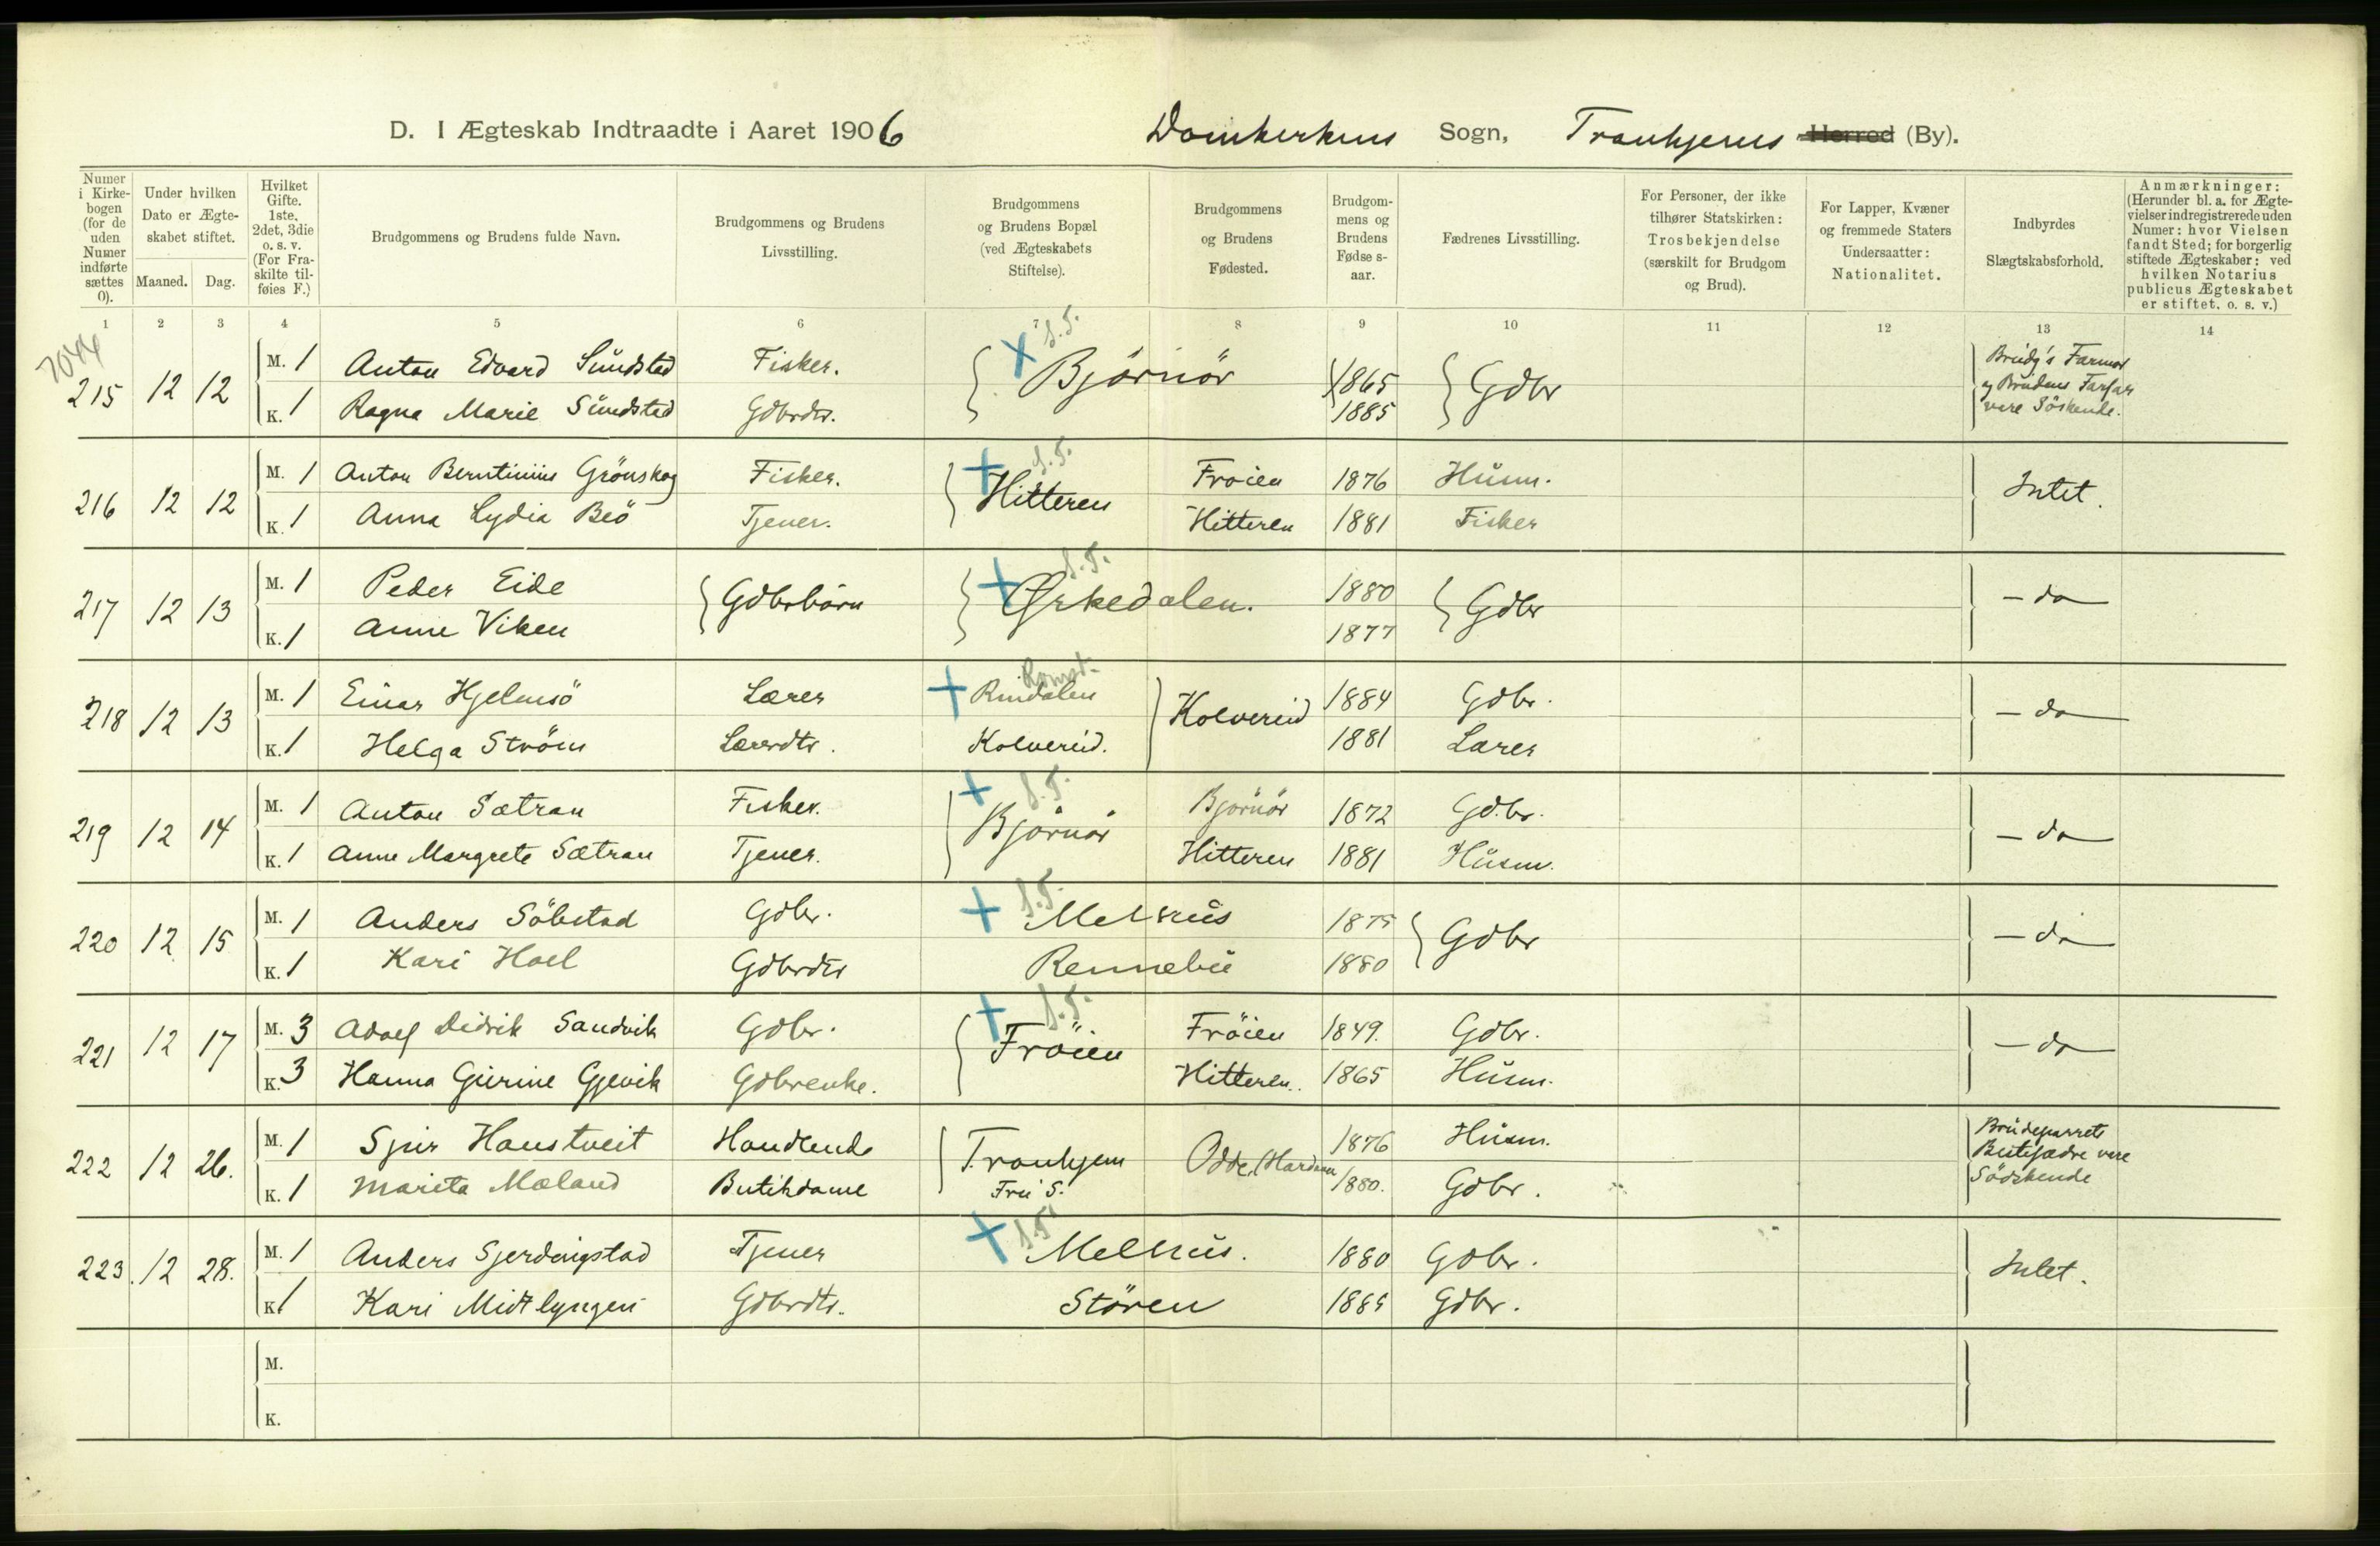 D. I Ægteskab Indtraadte i Aaret 1906 Domkirkens Sogn, Tronhjems Herred (By).
Numer i Kirkebogen (for de uden Numer indførte sættes 0).
Under hvilken Dato er Ægteskabet stiftet.
Maaned. Dag.
Hvilket Gifte. 1ste, 2det, 3die o. s. v. (For Fraskilte tilføies F.)
Brudgommens og Brudens fulde Navn.
Brudgommens og Brudens Livsstilling.
Brudgommens og Brudens Bopæl (ved Ægteskabets Stiftelse).
Brudgommens og Brudens Fødested.
Brudgommens og Brudens Fødse s-aar.
Fædrenes Livsstilling.
For Personer, der ikke tilhører Statskirken: Trosbekjendelse (særskilt for Brudgom og Brud).
For Lapper, Kvæner og fremmede Staters Undersaatter: Nationalitet.
Indbyrdes Slægtskabsforhold.
Anmærkninger: (Herunder bl. a. for Ægtevielser indregistrerede uden Numer: hvor Vielsen fandt Sted; for borgerlig stiftede Ægteskaber: ved hvilken Notarius publicus Ægteskabet er stiftet. o. s. v.)
1 2 3 4 5 6 7 8 9 10 11 12 13 14
215 12 12 M. 1 Anton Edvard Sundsted Fisker. S.T. Bjørnör 1865 Gdbr Brudg's Farmor
K. 1 Ragna Marie Sundsted Gdbrdtr. 1885 og Brudens Farfar
vare Söskende.
216 12 12 M. 1 Anton Berntinius Grönskag Fisker. S.T. Hitteren Froien 1876 Husm. Intet.
K. 1 Anna Lydia Beö Tjener. Hitteren 1881 Fisker
217 12 13 M. 1 Peder Eide Gdbrbörn S.T. Ørkedalen. 1880 Gdbr – do
K. 1 Anne Viken 1877
218 12 13 M. 1 Einar Hjelmsö Lærer Romsd. Rindalen Kolvereid 1884 Gdbr. – do
K. 1 Helga Ström Lærerdtr. Kolvereid. 1881 Lærer
219 12 14 M. 1 Anton Sætran Fisker. S.T. Bjørnör Bjørnör 1872 Gdbr. – do
K. 1 Anne Margrete Sætran Tjener. Hitteren 1881 Husm.
220 12 15 M. 1 Anders Söbstad Gdbr. S.T. Melhus 1875 Gdbr – do
K. 1 Kari Hoel Gdbrdtr Rennebu 1880
221 12 17 M. 3 Adolf Didrik Sandvik Gdbr. S.T. Fröien Fröien 1849. Gdbr. – do
K. 3 Hanna Gurine Gjevik Gdbrenke. Hitteren. 1865 Husm.
222 12 26. M. 1 Sjur Haustveit Handlende Tronhjem Odde, (Hardan 1876 Husm. Brudeparrets
K. 1 Marita Mæland Butikdame Fru S. 1880. Gdbr. Bestefædre vare
Södskende
223. 12 28. M. 1 Anders Gjerdingstad Tjener S.T. Melhus. 1880 Gdbr. Intet.
K. 1 Kari Midtlyngen Gdbrdtr. Stören 1885 Gdbr.
M.
K.